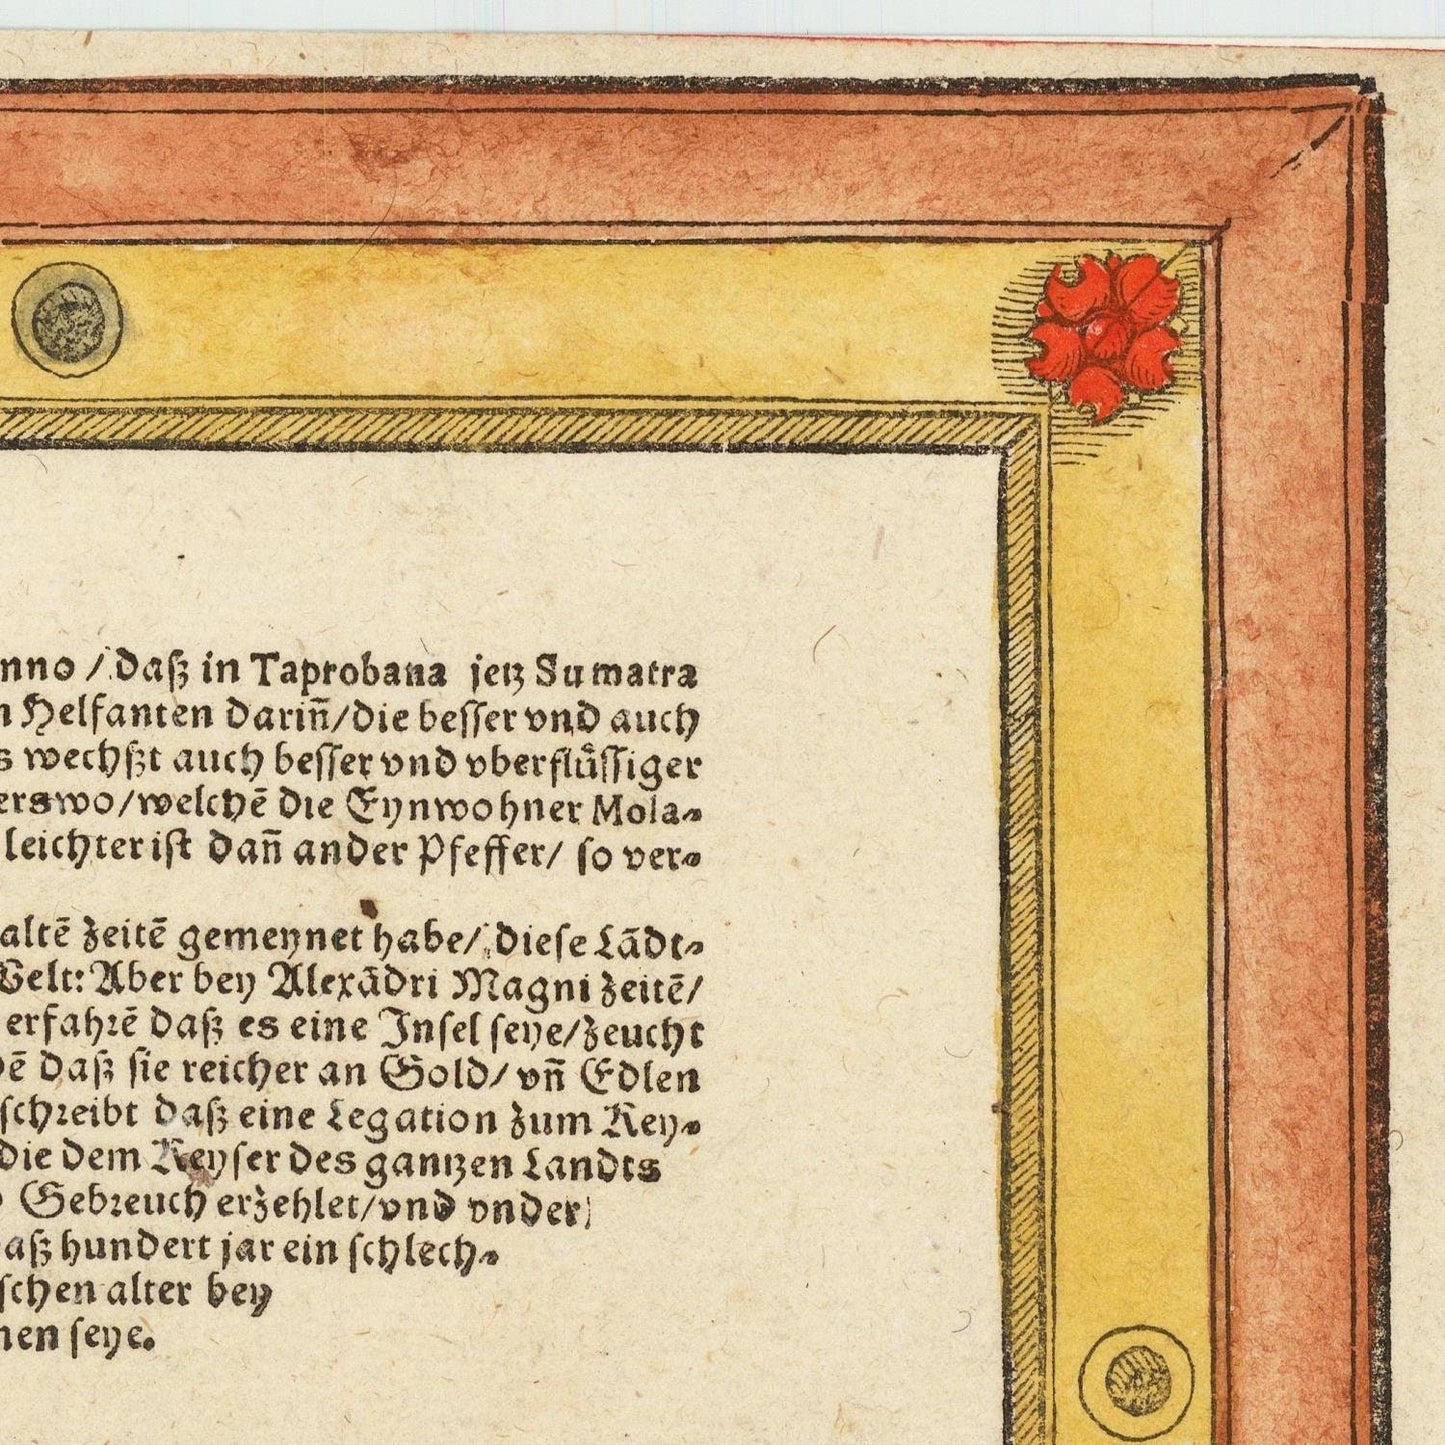 nno / daß in Taprobana jetz Sumatra
n Helfanten dariñ/die besser vnd auch
s wechßt auch besser vnd vberflüssiger
erswo/welchē die Eynwohner Mola-
leichter ist dañ ander Pfeffer/ so ver-
altē zeitē gemeynet habe/ diese Lādt-
Welt: Aber bey Alexādri Magni zeitē/
erfahrē daß es eine Insel seye/zeucht
dē daß sie reicher an Gold/ vñ Edlen
schreibt daß eine Legation zum Key-
die dem Keyser des gantzen Landts
Gebreuch erzehlet/vnd vnder
aß hundert jar ein schlech-
schen alter bey
nen seye.